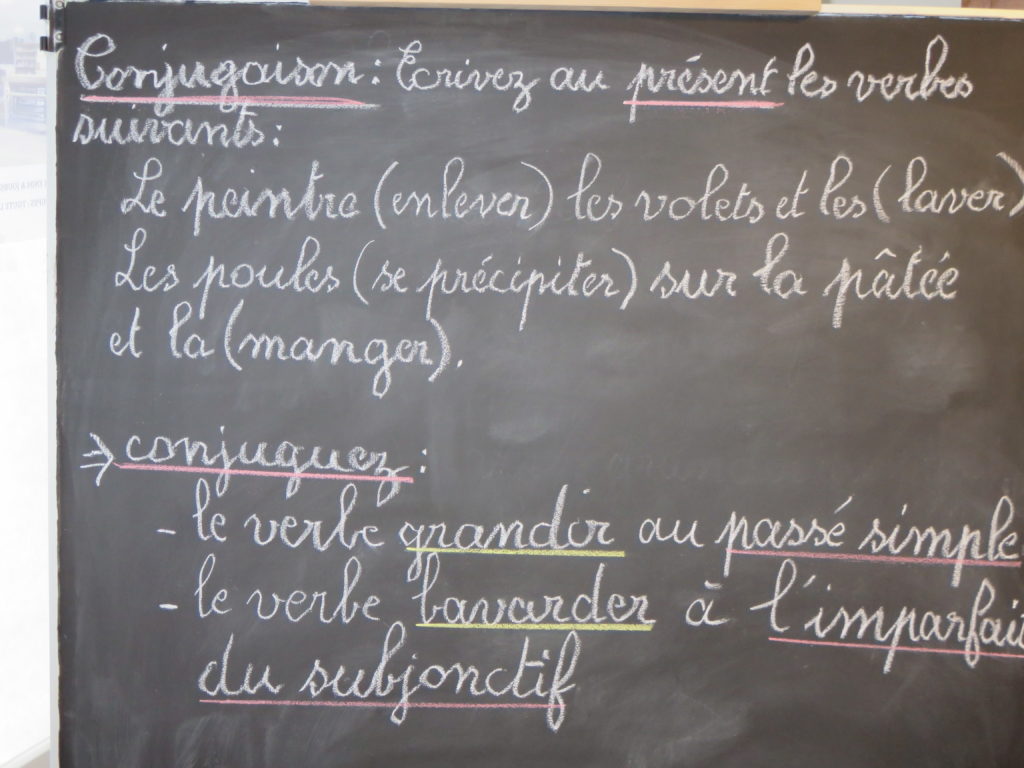 Conjugaison : Ecrivez au présent les verbes
suivants :
Le peintre (enlever) les volets et les (laver)
Les poules (se précipiter) sur la pâtée
et la (manger).
⇒ conjuguez :
- le verbe grandir au passé simple
- le verbe bavarder à l'imparfait
du subjonctif